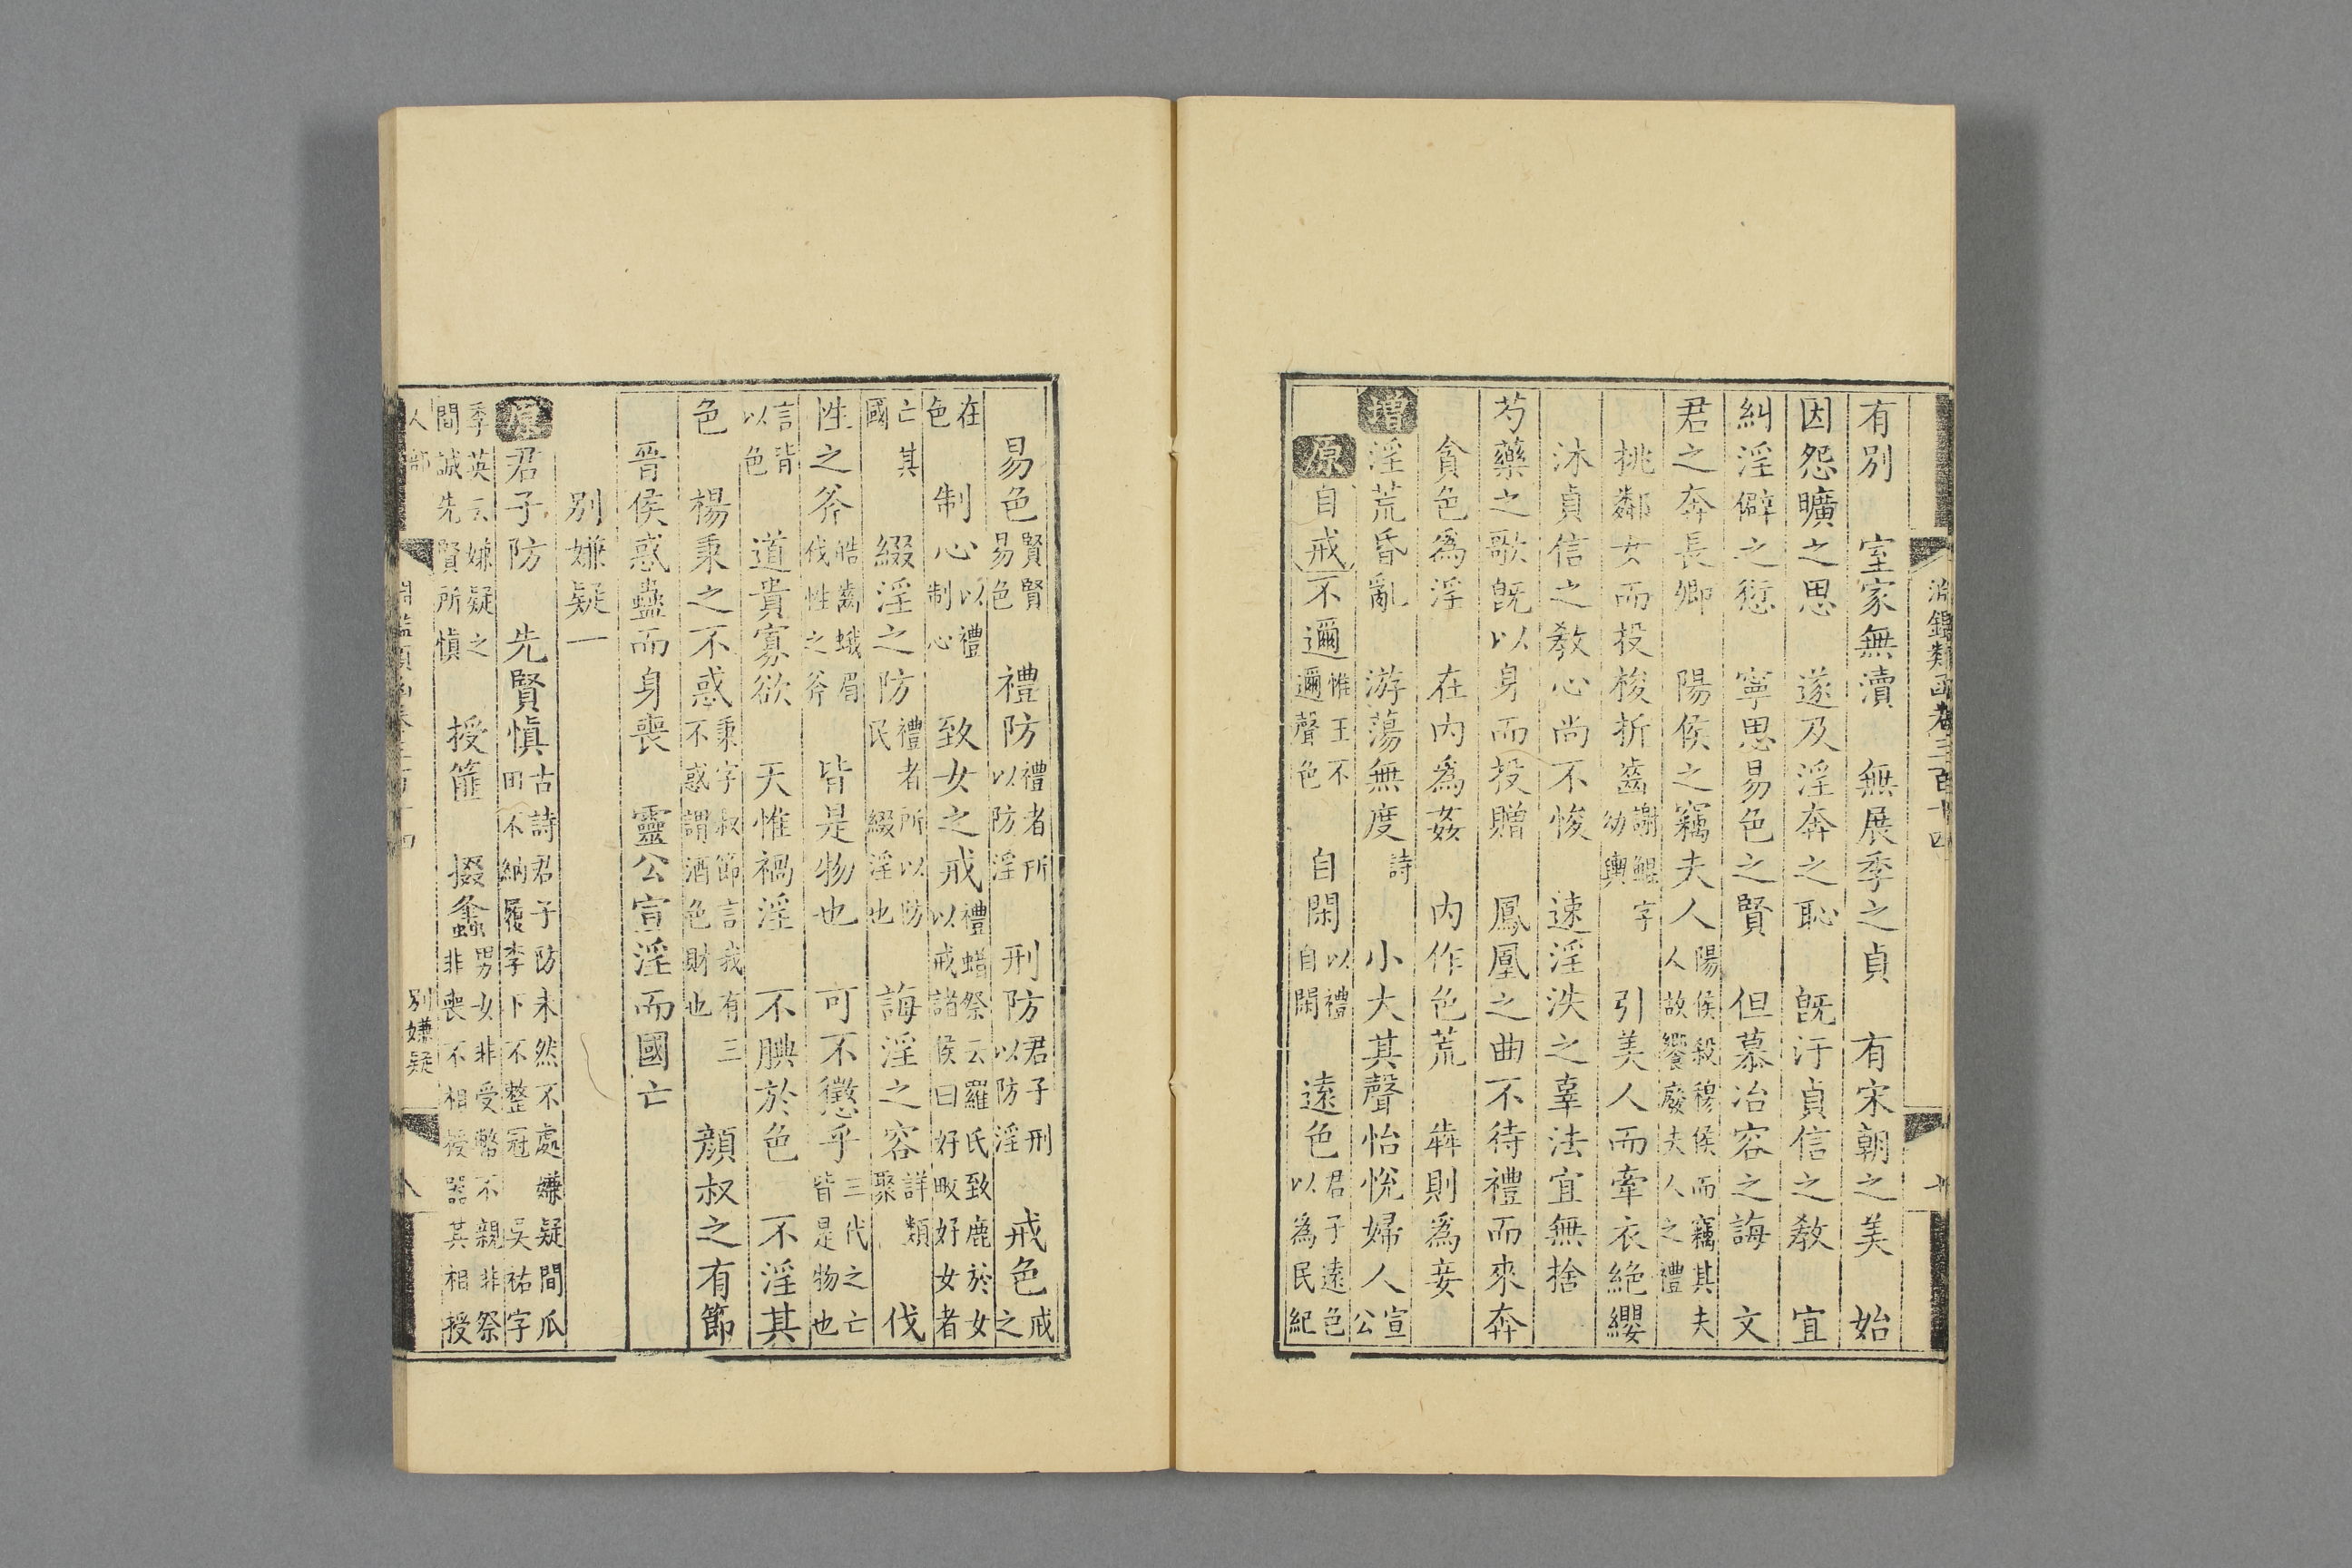 淵鑑類函卷三百十四
有別　室家無瀆　無展季之貞　有宋朝之美　始
因怨曠之思　遂及淫奔之恥　旣汙貞信之敎　宜
糾淫僻之愆　寧思易色之賢　但慕冶容之誨　文
君之奔長卿　陽侯之竊夫人陽侯殺穆侯而竊其夫人故饗廢夫人之禮
挑鄰女而投梭折齒謝鯤字幼輿　引美人而牽衣絶纓
沐貞信之敎心尚不悛　速淫泆之辜法宜無捨
芍藥之歌旣以身而投贈　鳳凰之曲不待禮而來奔
貪色爲淫　在內爲姦　內作色荒　犇則爲妾
增淫荒昏亂　游蕩無度詩　小大其聲怡悅婦人宣公
原自戒不邇惟王不邇聲色　自閑以禮自閑　遠色君子遠色以爲民紀
易色賢賢易色　禮防禮者所以防淫　刑防君子刑以防淫　戒色戒之
在色　制心以禮制心　致女之戒禮蜡祭云羅氏致鹿於女以戒諸侯曰好畋好女者
亡其國　綴淫之防禮者所以防民綴淫也　誨淫之容詳類聚　伐
性之斧皓齒蛾眉伐性之斧　皆是物也　可不懲乎三代之亡皆是物也
言皆以色　道貴寡欲　天惟禍淫　不腆於色　不淫其
色　楊秉之不惑秉字叔節言我有三不惑謂酒色財也　顏叔之有節
晉侯惑蠱而身喪　靈公宣淫而國亡
別嫌疑一
原君子防　先賢愼古詩君子防未然不處嫌疑間瓜田不納履李下不整冠　吳祐字
季英云嫌疑之間誠先賢所愼　授篚　掇螽男女非受幣不親非祭非喪不相授器其相授
人部
別嫌疑
八